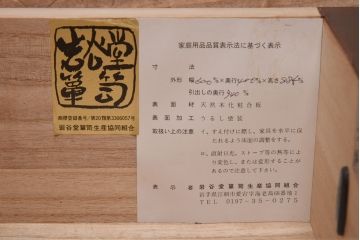 岩谷堂箪笥
商標登録番号／第20類第3306057号
岩谷堂箪笥生産協同組合
家庭用品品質表示法に基づく表示
寸法
外形 幅 ×奥行 ×高さ
引出しの奥行
表面材 天然木化粧合板
表面加工 うるし塗装
取扱い上の注意 イ．すえ付けに際し、家具を水平に保
たれるよう床面の調整をする。
ロ．直射日光、ストーブ等の熱等によ
り変色し、または変形することがあ
るので注意して下さい。
表示者 岩谷堂箪笥生産協同組合
岩手県江刺市愛宕字海老島68番地1
TEL 0197-35-0275